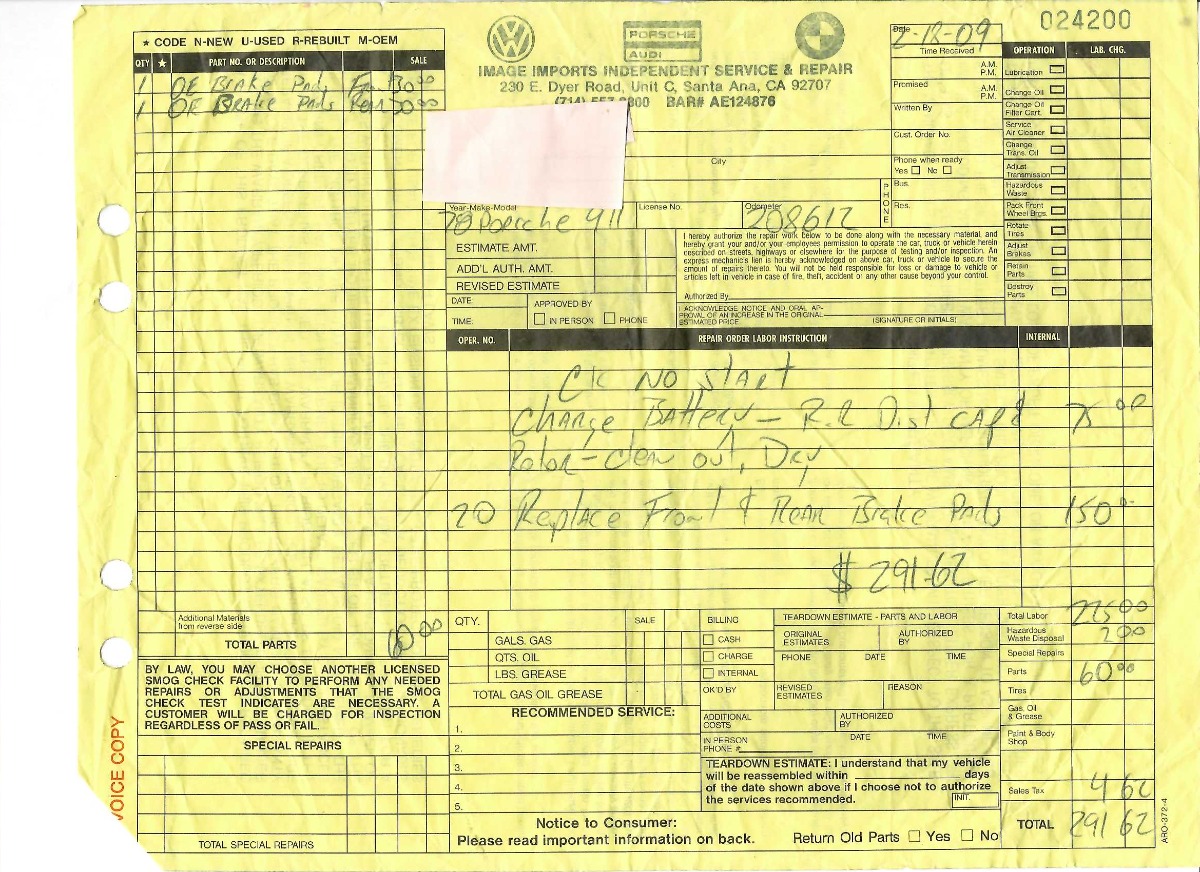 024200
★ CODE N-NEW U-USED R-REBUILT M-OEM
QTY ★ PART NO. OR DESCRIPTION SALE
1 OE Brake Pads 30.00
1 OE Brake Pads Rear 30.00
PORSCHE
AUDI
IMAGE IMPORTS INDEPENDENT SERVICE & REPAIR
230 E. Dyer Road, Unit C, Santa Ana, CA 92707
BAR# AE124876
Date
Time Received
A.M.
P.M.
Promised A.M.
P.M.
Written By
Cust. Order No.
City
Phone when ready
Yes No
PHONE
Bus.
Res.
Year-Make-Model License No. Odometer
78 Porsche 911 208612
OPERATION LAB. CHG.
Lubrication
Change Oil
Change Oil
Filter Cart.
Service
Air Cleaner
Change
Trans. Oil
Adjust
Transmission
Hazardous
Waste
Pack Front
Wheel Brgs.
Rotate
Tires
Adjust
Brakes
Retain
Parts
Destroy
Parts
ESTIMATE AMT.
ADD'L AUTH. AMT.
REVISED ESTIMATE
DATE:
TIME:
APPROVED BY
IN PERSON PHONE
I hereby authorize the repair work below to be done along with the necessary material, and
hereby grant your and/or your employees permission to operate the car, truck or vehicle herein
described on streets, highways or elsewhere for the purpose of testing and/or inspection. An
express mechanic's lien is hereby acknowledged on above car, truck or vehicle to secure the
amount of repairs thereto. You will not be held responsible for loss or damage to vehicle or
articles left in vehicle in case of fire, theft, accident or any other cause beyond your control.
Authorized By
ACKNOWLEDGE NOTICE AND ORAL AP-
PROVAL OF AN INCREASE IN THE ORIGINAL
ESTIMATED PRICE
(SIGNATURE OR INITIALS)
OPER. NO. REPAIR ORDER LABOR INSTRUCTION INTERNAL
CK NO START
Change Battery – R.R Dist cap & 75.00
Rotor – clean out, Dry
20 Replace Front & Rear Brake Pads 150
$ 291.62
Additional Materials
from reverse side
TOTAL PARTS 60.00
BY LAW, YOU MAY CHOOSE ANOTHER LICENSED
SMOG CHECK FACILITY TO PERFORM ANY NEEDED
REPAIRS OR ADJUSTMENTS THAT THE SMOG
CHECK TEST INDICATES ARE NECESSARY. A
CUSTOMER WILL BE CHARGED FOR INSPECTION
REGARDLESS OF PASS OR FAIL.
SPECIAL REPAIRS
TOTAL SPECIAL REPAIRS
QTY. SALE
GALS. GAS
QTS. OIL
LBS. GREASE
TOTAL GAS OIL GREASE
RECOMMENDED SERVICE:
1.
2.
3.
4.
5.
BILLING
CASH
CHARGE
INTERNAL
TEARDOWN ESTIMATE - PARTS AND LABOR
ORIGINAL
ESTIMATES
AUTHORIZED
BY
PHONE DATE TIME
OK'D BY
REVISED
ESTIMATES
REASON
ADDITIONAL
COSTS
AUTHORIZED
BY
IN PERSON
PHONE #
DATE TIME
TEARDOWN ESTIMATE: I understand that my vehicle
will be reassembled within days
of the date shown above if I choose not to authorize
the services recommended. INIT.
Notice to Consumer:
Please read important information on back.
Return Old Parts Yes No
Total Labor 225 00
Hazardous
Waste Disposal 2 00
Special Repairs
Parts 60 00
Tires
Gas, Oil
& Grease
Paint & Body
Shop
Sales Tax 4 62
TOTAL 291 62
ARO-372-4
VOICE COPY